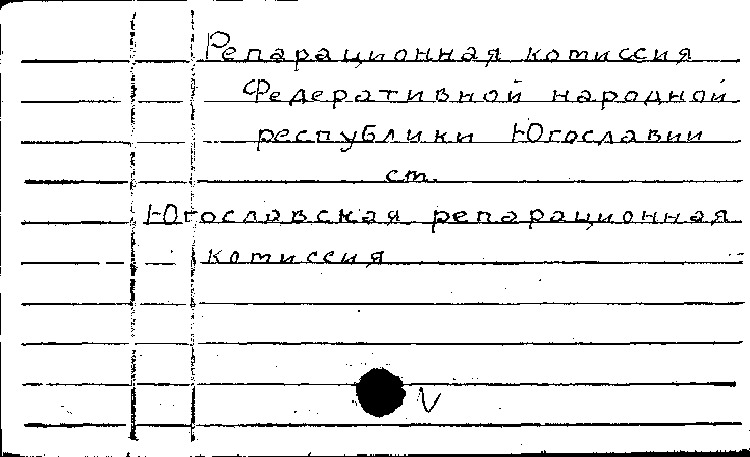 Репарационная комиссия
Федеративной народной
республики Югославии
ст.
Югославская репарационная
комиссия
V